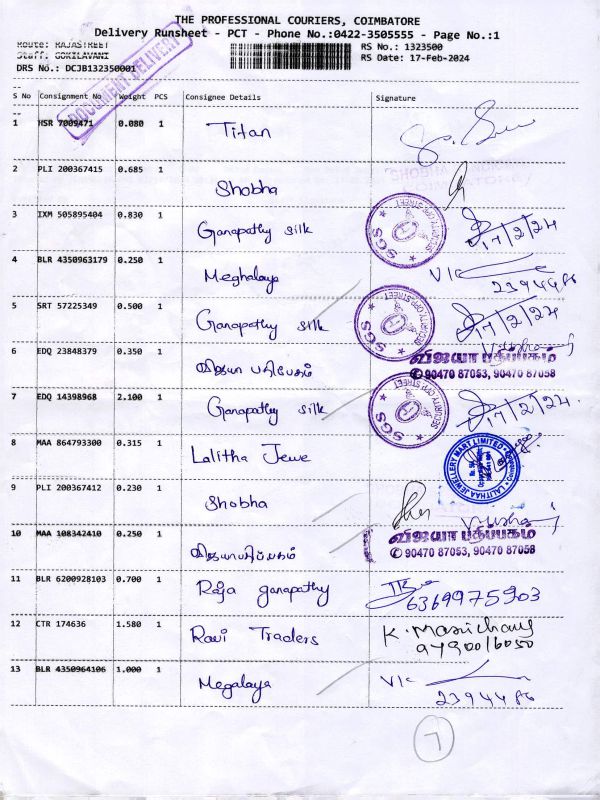 THE PROFESSIONAL COURIERS, COIMBATORE
Delivery Runsheet - PCT - Phone No.:0422-3505555 - Page No.:1
Route: RAJASTREET
Staff: GOKILAVANI
DRS No.: DCJB132350001
RS No.: 1323500
RS Date: 17-Feb-2024
DOCUMENT DELIVERY
S No Consignment No Weight PCS Consignee Details Signature
1 HSR 7009471 0.080 1 Titan
2 PLI 200367415 0.685 1 Shobha
3 IXM 505895404 0.830 1 Ganapathy silk 17/2/24
SGS
4 BLR 4350963179 0.250 1 Meghalaya
2394486
5 SRT 57225349 0.500 1 Ganapathy silk 17/2/24
SGS
6 EDQ 23848379 0.350 1
விஜயா பதிப்பகம்
✆ 90470 87053, 90470 87058
7 EDQ 14398968 2.100 1 Ganapathy silk 17/2/24.
SGS
8 MAA 864793300 0.315 1 Lalitha Jewe
LALITHAA JEWELLERY MART LIMITED
9 PLI 200367412 0.230 1 Shobha
10 MAA 108342410 0.250 1
விஜயா பதிப்பகம்
✆ 90470 87053, 90470 87058
11 BLR 6200928103 0.700 1 Raja ganapathy
6369975903
12 CTR 174636 1.580 1 Ravi Traders
13 BLR 4350964106 1.000 1 Megalaya
2394486
7